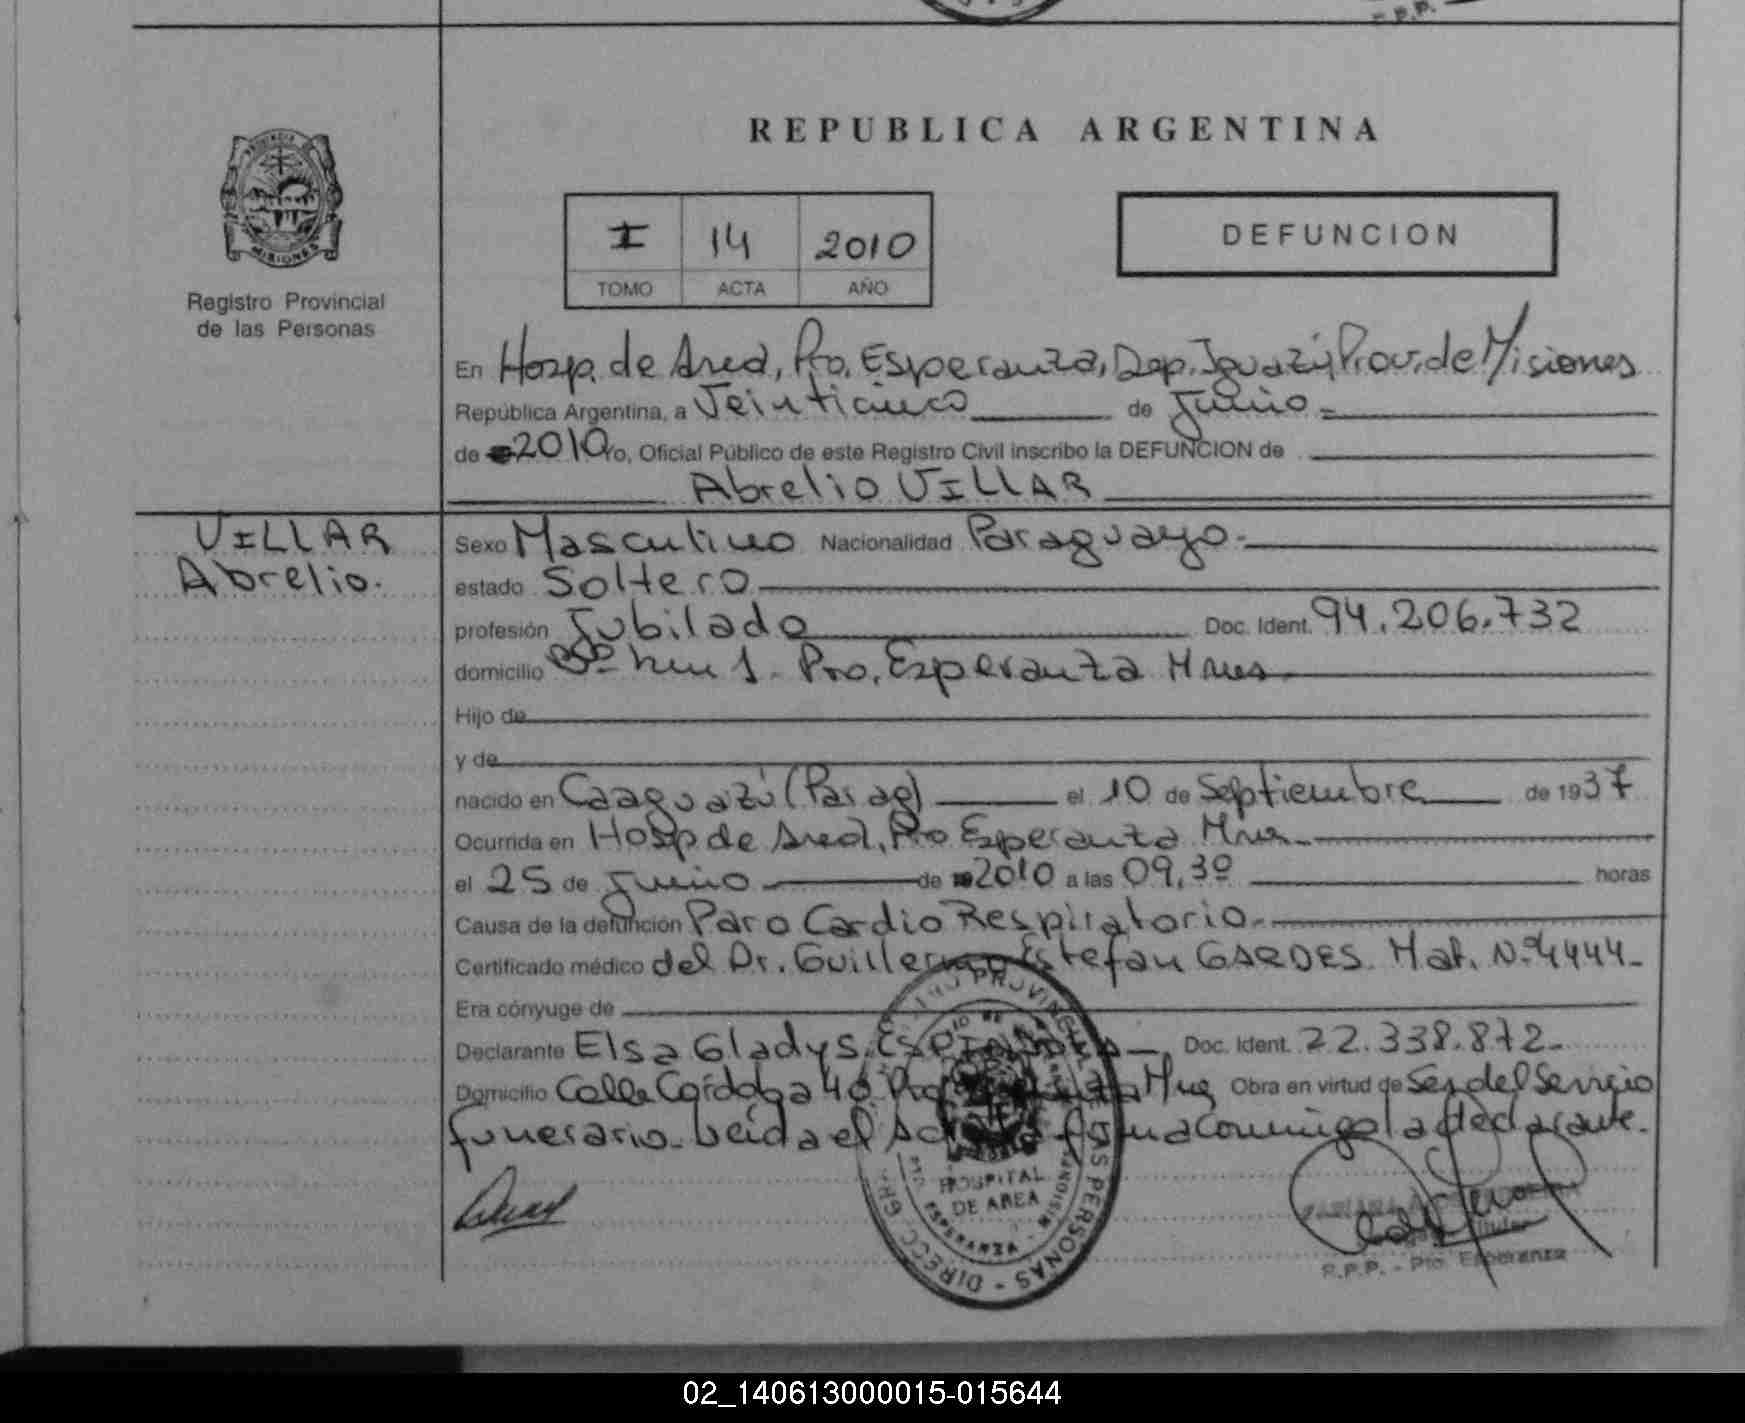 REPUBLICA ARGENTINA
I 14 2010
TOMO ACTA AÑO
DEFUNCION
PROVINCIA
MISIONES
Registro Provincial
de las Personas
En Hosp. de Area, Pto. Esperanza, Dep. Iguazú Prov. de Misiones
República Argentina, a Veinticinco de Junio
de 2010 Yo, Oficial Público de este Registro Civil inscribo la DEFUNCION de
Abrelio VILLAR
VILLAR
Abrelio.
Sexo Masculino Nacionalidad Paraguayo.
estado Soltero
profesión Jubilado Doc. Ident. 94.206.732
domicilio km 1. Pto. Esperanza Mnes
Hijo de
y de
nacido en Caaguazú (Parag) el 10 de Septiembre de 1937
Ocurrida en Hosp de Area, Pto Esperanza Mnes
el 25 de Junio de 2010 a las 09,30 horas
Causa de la defunción Paro Cardio Respiratorio.
Certificado médico del Dr. Guillermo Estefan GARDES. Mat. Nº 4444-
Era cónyuge de
Declarante Elsa Gladys Doc. Ident. 22.338.872-
Domicilio Calle Córdoba 40 Pto Mnes Obra en virtud de Ser del Servicio
funerario. Leída el Acta la firma conmigo la declarante.
HOSPITAL
DE AREA
PTO. ESPERANZA
R.P.P. - Pto. Esperanza
02_140613000015-015644